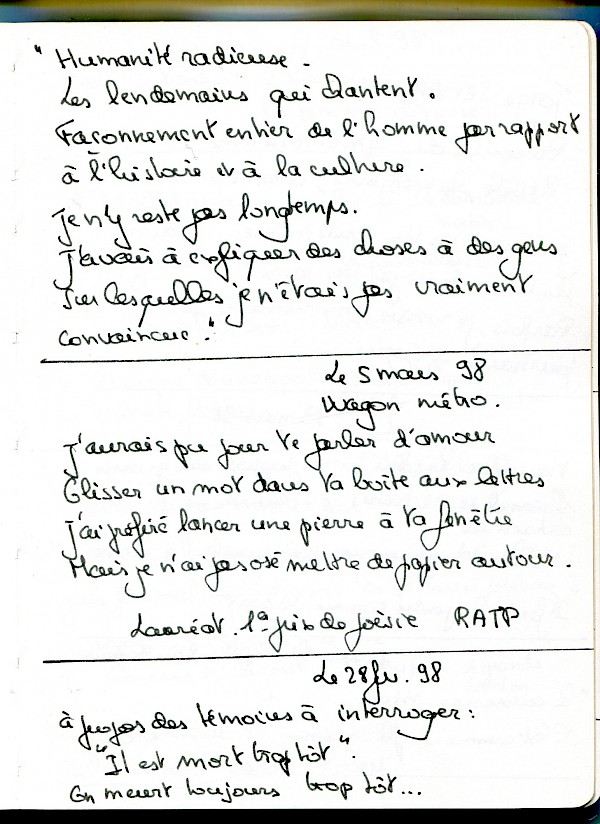 " Humanité radieuse -
Les lendemains qui chantent.
Façonnement entier de l'homme par rapport
à l'histoire et à la culture.
Je n'y reste pas longtemps.
J'avais à expliquer des choses à des gens
sur lesquelles je n'étais pas vraiment
convaincue."
Le 5 mars 98
Wagon métro.
J'aurais pu pour te parler d'amour
Glisser un mot dans ta boîte aux lettres
J'ai préféré lancer une pierre à ta fenêtre
Mais je n'ai pas osé mettre de papier autour.
Lauréat. 1er prix de poèsie RATP
Le 28 fv. 98
à propos des témoins à interroger :
"Il est mort trop tôt".
On meurt toujours trop tôt...